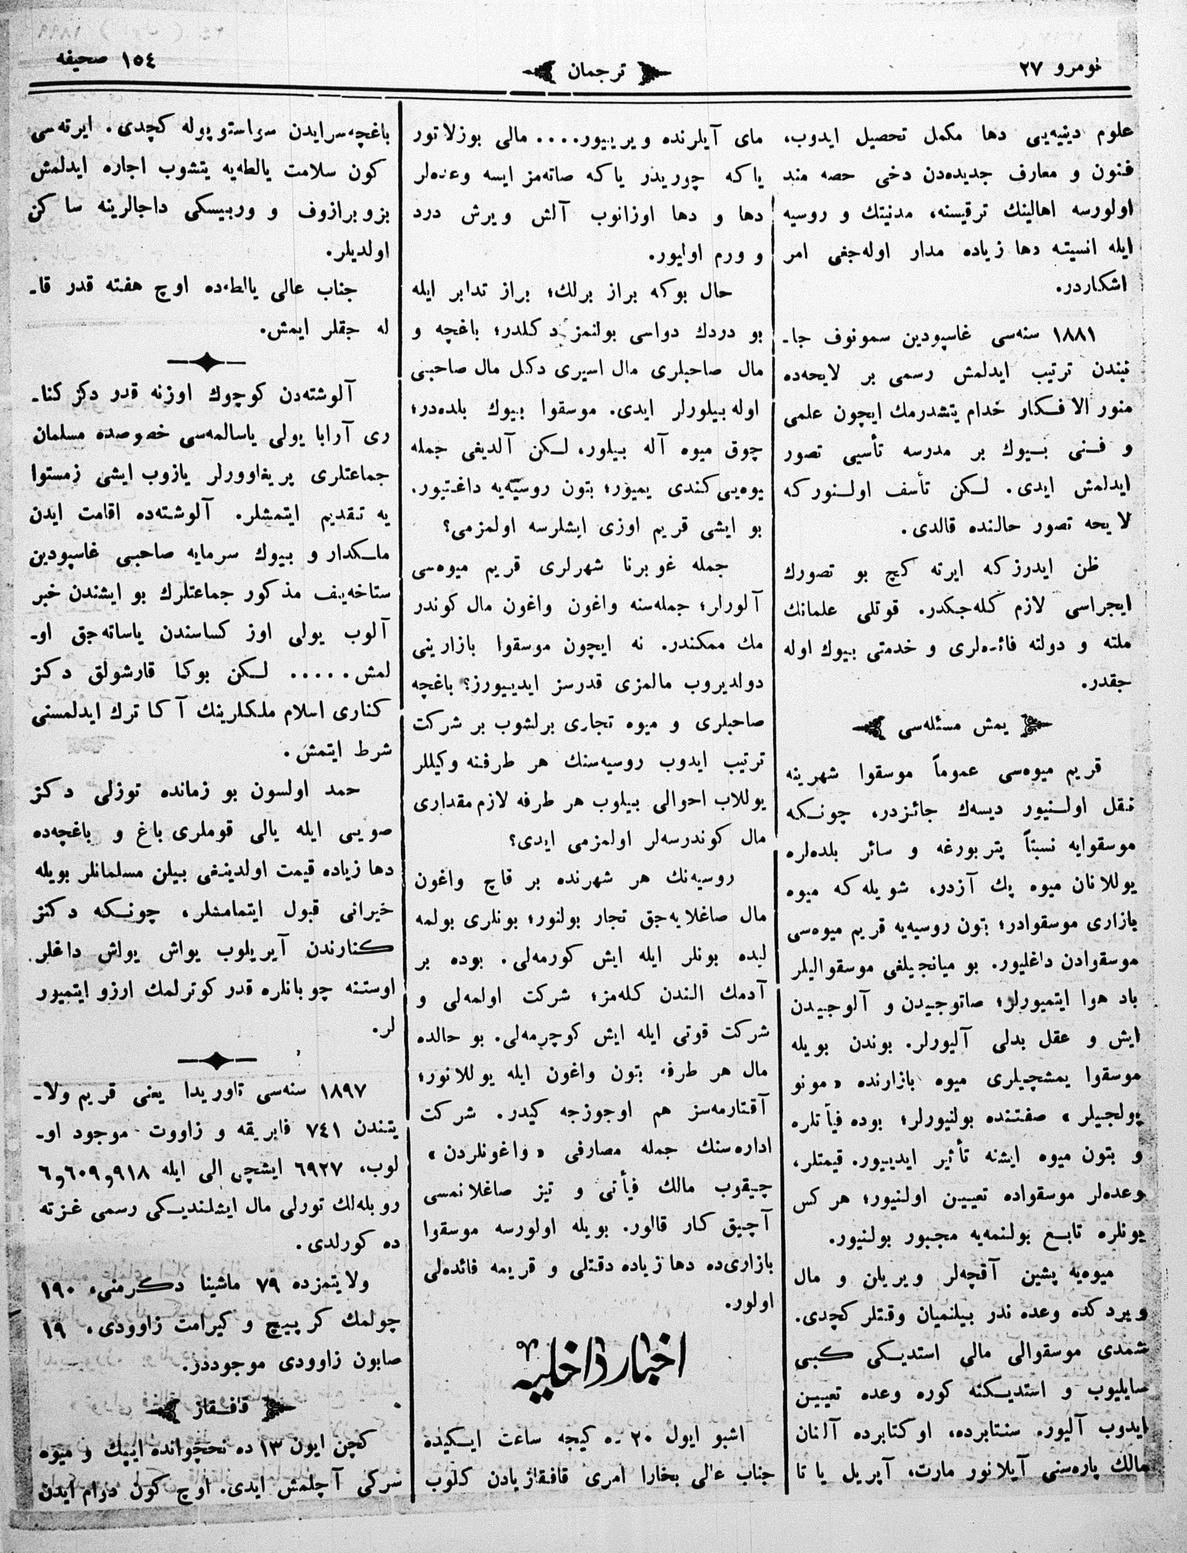 نومرو ٢٧
ترجمان
١٥٤ صحیفه
علوم دینیه‌یی دها مکمل تحصیل ایدوب،
فنون و معارف جدیده‌دن دخی حصه مند
اولورسه اهالینك ترقیسنه، مدنیتك و روسیه
ایله انسیته دها زیاده مدار اوله‌جغی امر
اشکاردر.
١٨٨١ سنه‌سی غاسپودین سمونوف جا-
نبندن ترتیب ایدلمش رسمی بر لایحه‌ده
منور الافکار خدام یتشدرمك ایچون علمی
و فنی بیوك بر مدرسه تأسیی تصور
ایدلمش ایدی. لکن تأسف اولنورکه
لایحه تصور حالنده قالدی.
ظن ایدرزکه ایرته کیچ بو تصورك
ایجراسی لازم کله‌جکدر. قوتلی علمانك
ملته و دولته فائده‌لری و خدمتی بیوك اوله
جقدر.
یمش مسئله‌سی
قریم میوه‌سی عموماً موسقوا شهرینه
نقل اولنیور دیسه‌ك جائزدر، چونکه
موسقوایه نسبتاً پتربورغه و سائر بلده‌لره
یوللانان میوه پك آزدر، شویله‌که میوه
بازاری موسقوادر؛ بتون روسیه‌یه قریم میوه‌سی
موسقوادن داغلیور. بو میانجیلغی موسقوالیلر
باد هوا ایتمیورلر؛ صاتوجیدن و آلوجیدن
ایش و عقل بدلی آلیورلر. بوندن بویله
موسقوا یمشچیلری میوه بازارنده «مونو
پولجیلر» صفتنده بولنیورلر؛ بوده فیأتلره
و بتون میوه ایشنه تأثیر ایدییور. قیمتلر،
وعده‌لر موسقواده تعیین اولنیور؛ هرکس
بونلره تابع بولنمه‌یه مجبور بولنیور.
میوه‌یه پشین آقچه‌لر ویریلن و مال
ویردکده وعده ندر بیلنمیان وقتلر کچدی.
شمدی موسقوالی مالی استدیکی کبی
سایلیوب و استدیکنه کوره وعده تعیین
ایدوب آلیور. سنتابرده، اوکتابرده آلنان
مالك پاره‌سنی آیلانور مارت، آپریل یا تا
مای آیلرنده ویرییور.... مالی بوزلاتور
یاکه چوریدر یاکه صاته‌مز ایسه وعده‌لر
دها و دها اوزانوب آلش ویرش درد
و ورم اولیور.
حال بوکه براز برلك؛ براز تدابر ایله
بو دردك دواسی بولنمز دکلدر؛ باغچه و
مال صاحبلری مال اسیری دکل مال صاحبی
اوله بیلورلر ایدی. موسقوا بیوك بلده‌در؛
چوق میوه آله بیلور، لکن آلدیغی جمله
یوه‌یی کندی یمیور؛ بتون روسیه‌یه داغتیور.
بو ایشی قریم اوزی ایشلرسه اولمزمی؟
جمله غوبرنا شهرلری قریم میوه‌سی
آلورلر؛ جمله‌سنه واغون واغون مال کوندر
مك ممکندر. نه ایچون موسقوا بازارینی
دولدیروب مالمزی قدرسز ایدییورز؟ باغچه
صاحبلری و میوه تجاری برلشوب بر شرکت
ترتیب ایدوب روسیه‌سنك هر طرفنه وکیللر
یوللاب احوالی بیلوب هر طرفه لازم مقداری
مال کوندرسه‌لر اولمزمی ایدی؟
روسیه‌نك هر شهرنده بر قاچ واغون
مال صاغلایه‌جق تجار بولنور؛ بونلری بولمه
لیده بونلر ایله ایش کورمه‌لی. بوده بر
آدمك الندن کله‌مز؛ شرکت اولمه‌لی و
شرکت قوتی ایله ایش کوچرمه‌لی. بو حالده
مال هر طرفه بتون واغون ایله یوللانور؛
آقتارمه‌سز هم اوجوزجه کیدر. شرکت
اداره‌سنك جمله مصارفی «واغونلردن»
چیقوب مالك فیأتی و تیز صاغلانمسی
آچیق کار قالور. بویله اولورسه موسقوا
بازاری‌ده دها زیاده دقتلی و قریمه فائده‌لی
اولور.
اخبار داخلیه
اشبو ایول ٢٠ ده کیجه ساعت ایکیده
جناب عالی بخارا امری قافقازیادن کلوب
باغچه‌سرایدن سواستوپوله کچدی. ایرته‌سی
کون سلامت یالطه‌یه یتشوب اجاره ایدلمش
بزوبرازوف و وربیسکی داجالرینه ساکن
اولدیلر.
جناب عالی یالطه‌ده اوچ هفته قدر قا-
له جقلر ایمش.
آلوشته‌دن کوچوك اوزنه قدر دکز کنا-
ری آرابا یولی یاسالمه‌سی خصوصده مسلمان
جماعتلری پریغاوورلر یازوب ایشی زمستوا
یه تقدیم ایتمشلر. آلوشته‌ده اقامت ایدن
ملکدار و بیوك سرمایه صاحبی غاسپودین
ستاخه‌یف مذکور جماعتلرك بو ایشندن خبر
آلوب یولی اوز کساسندن یاساته‌جق او-
لمش..... لکن بوکا قارشولق دکز
کناری اسلام ملکلرینك آکا ترك ایدلمسنی
شرط ایتمش.
حمد اولسون بو زمانده توزلی دکز
صویی ایله یالی قوملری باغ و باغچه‌ده
دها زیاده قیمت اولدیغی بیلن مسلمانلر بویله
خیرانی قبول ایتمامشلر، چونکه دکز
کنارندن آیریلوب یواش یواش داغلر
اوستنه چوبانلره قدر کوترلمك ارزو ایتمیور
لر.
١٨٩٧ سنه‌سی تاوریدا یعنی قریم ولا-
یتندن ٧٤١ فابریقه و زاووت موجود او-
لوب، ٦٩٢٧ ایشچی الی ایله ٦و٦٠٩و٩١٨
روبله‌لك تورلی مال ایشلندیکی رسمی غزته
ده کورلدی.
ولایتمزده ٧٩ ماشینا دکرمنی، ١٩٠
چولمك کرپیچ و کیرامت زاوودی، ١٩
صابون زاوودی موجوددر.
قافقاز
کچن ایون ١٣ ده نخچوانده ایپك و میوه
سرکی آچلمش ایدی. اوچ کون درام ایدن